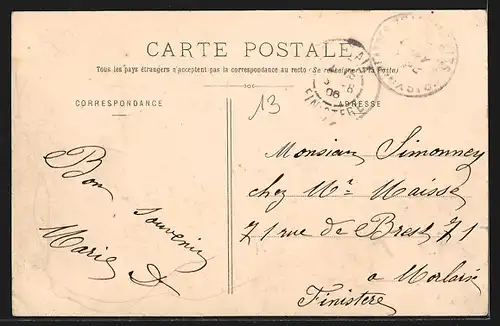 CARTE POSTALE
Tous les pays étrangers n'acceptent pas la correspondance au recto (Se renseigner à la Poste)
CORRESPONDANCE
ADRESSE
13
06
FINISTERE
Bon
Souvenir
Marie
Monsieur Simonney
chez Mr Maisse
71 rue de Brest 71
a Morlaix
Finistere